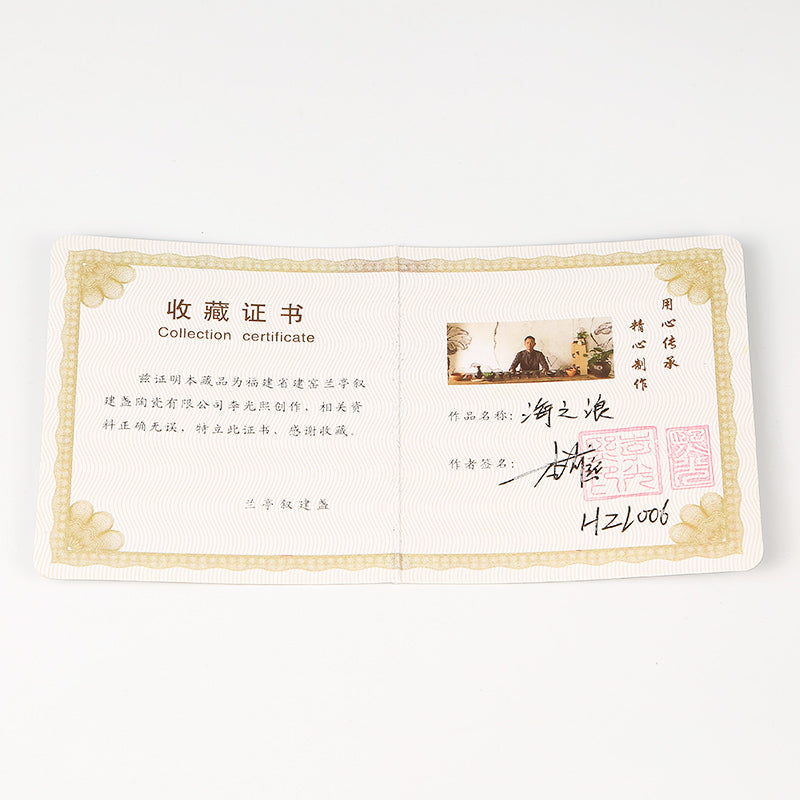 收藏证书
Collection certificate
兹证明本藏品为福建省建窑兰亭叙
建盏陶瓷有限公司李光熙创作，相关资
料正确无误，特立此证书、感谢收藏.
兰亭叙建盏
用心传承
精心制作
作品名称：海之浪
作者签名：
HZL006